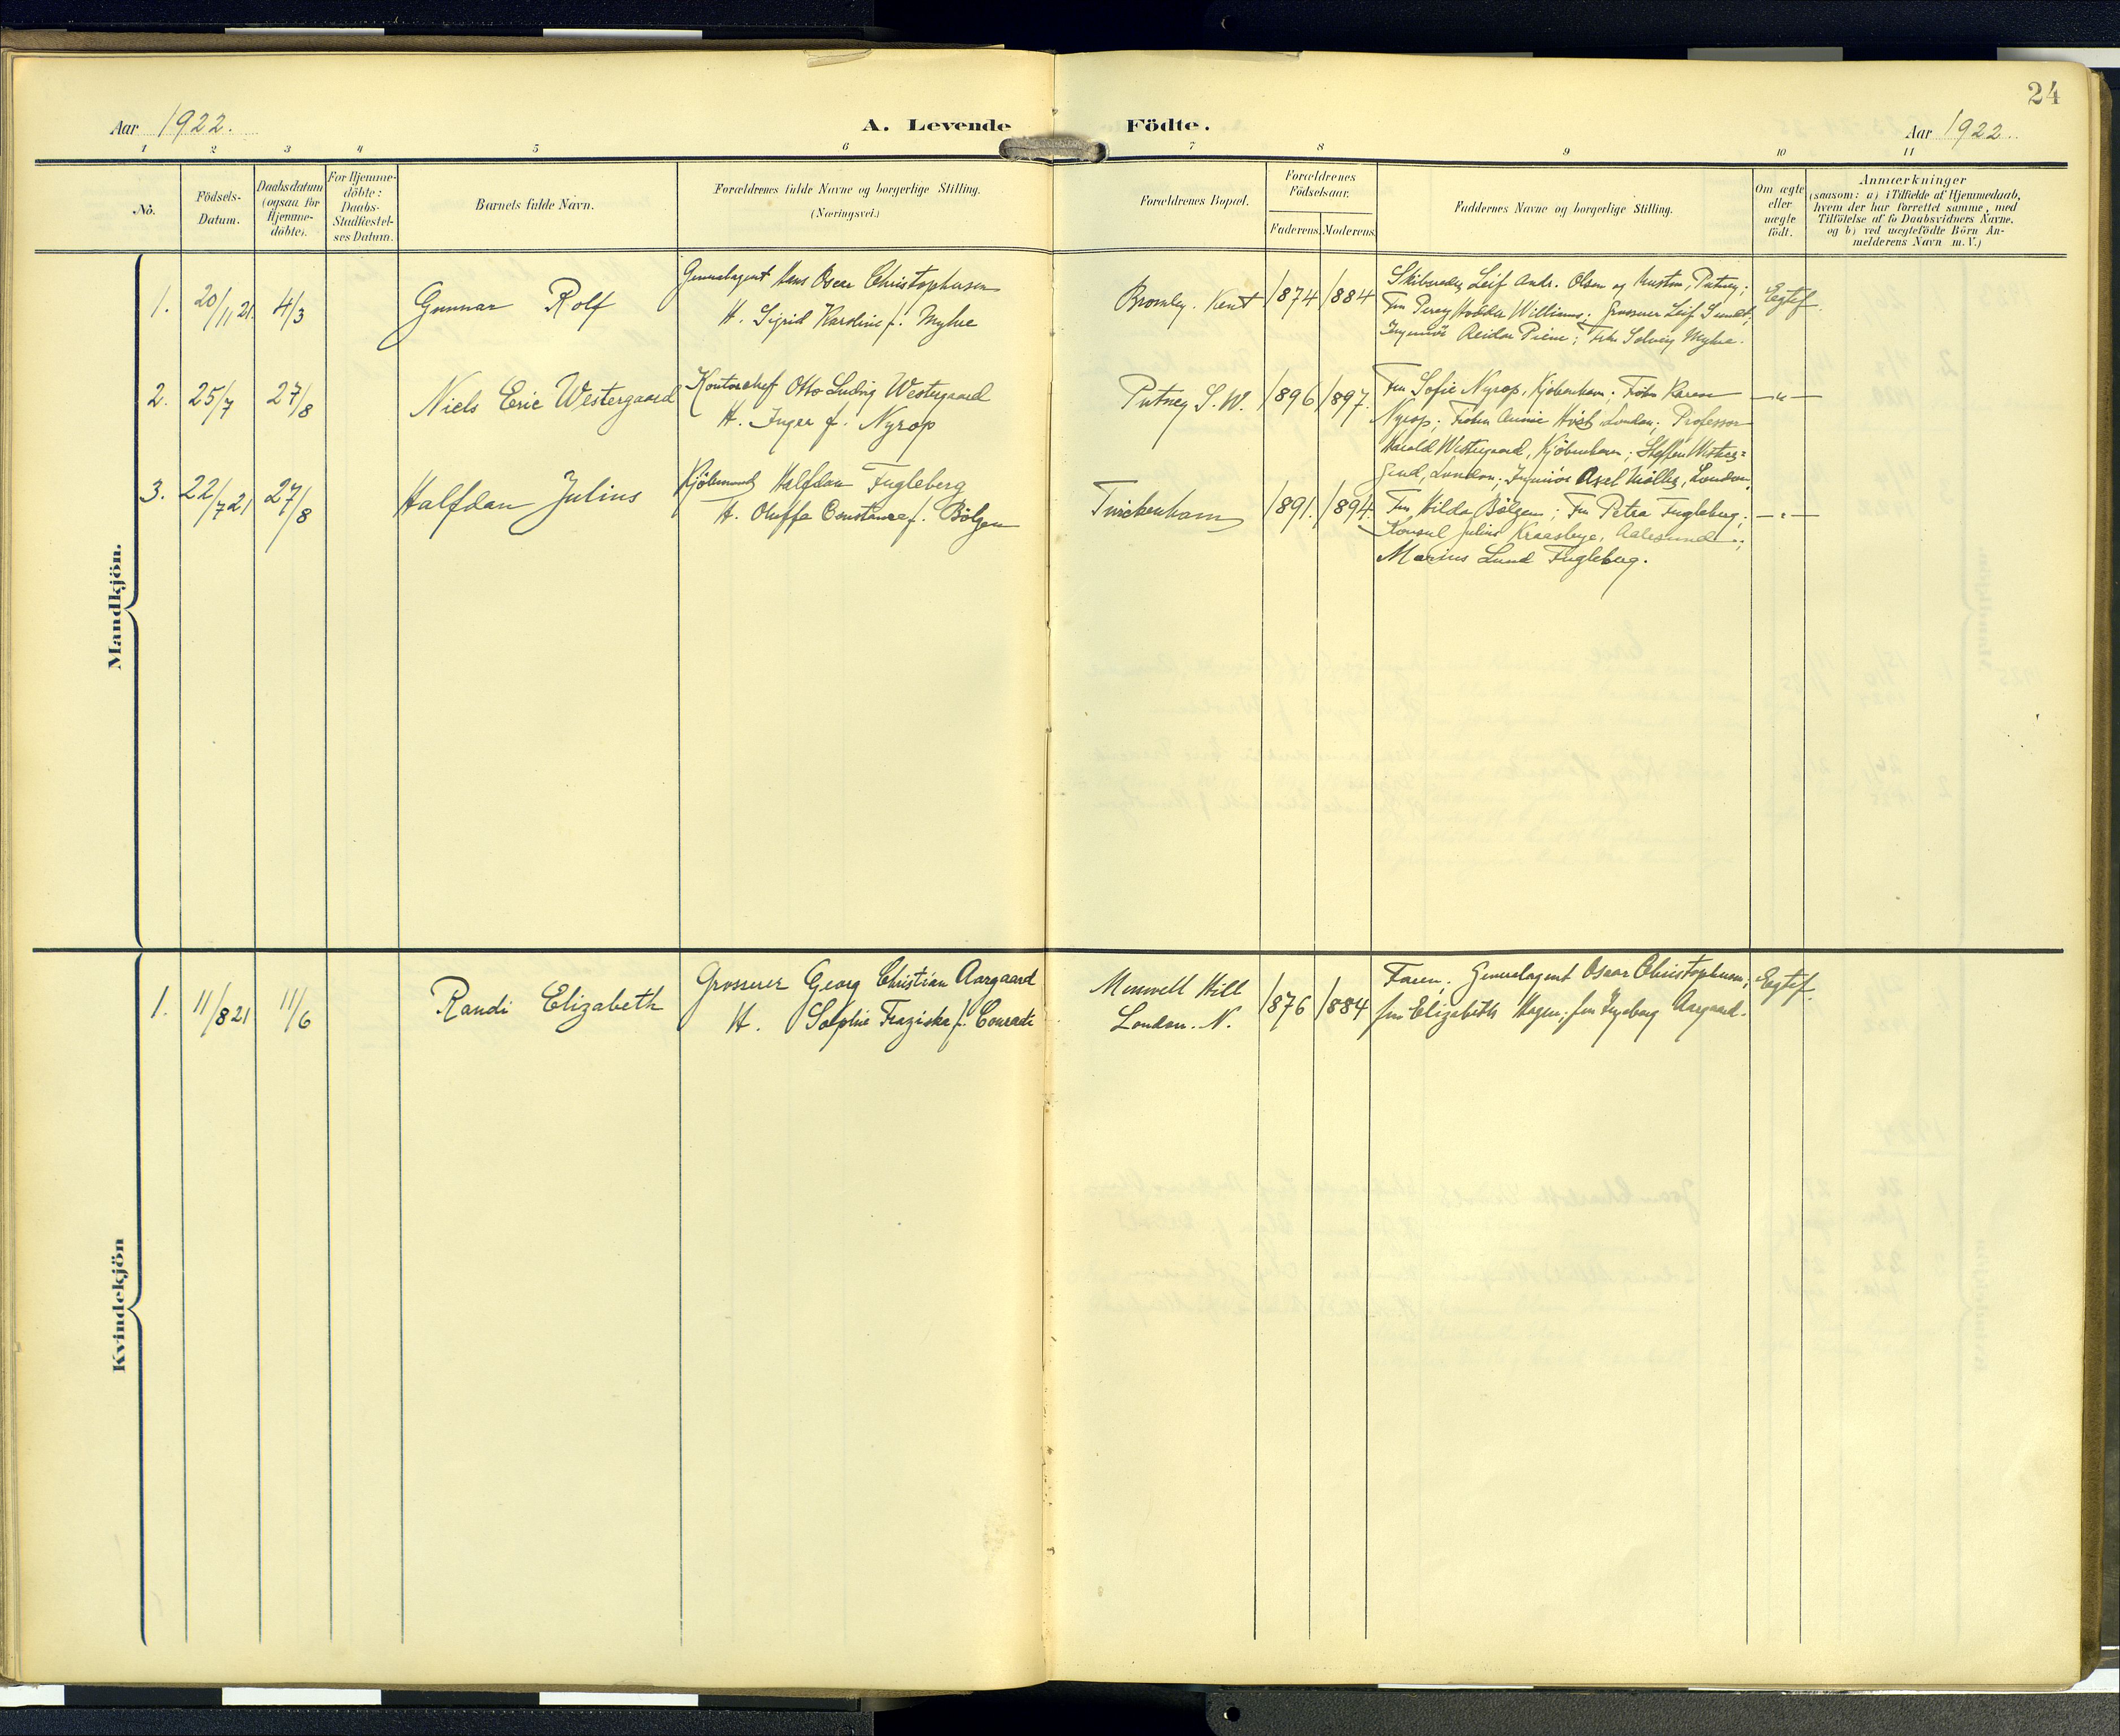 24
Aar 1922.
A. Levende Födte.
Aar 1922.
1 2 3 4 5 6 7 8 9 10 11
No.
Födsels-
Datum.
Daabsdatum
(ogsaa for
Hjemme-
döbte).
For Hjemme-
döbte:
Daabs-
Stadfæstel-
ses Datum.
Barnets fulde Navn.
Forældrenes fulde Navne og borgerlige Stilling.
(Næringsvei.)
Forældrenes Bopæl.
Forældrenes
Födselsaar.
Faderens. Moderens.
Faddernes Navne og borgerlige Stilling.
Om ægte
eller
uægte
födt.
Anmærkninger
(saasom: a) i Tilfælde af Hjemmedaab,
hvem der har forrettet samme, med
Tilföielse af to Daabsvidners Navne,
og b) ved uægtefödte Börn An-
melderens Navn m. V.)
Mandkjön.
1. 20/11 21. 4/3 Gunnar Rolf
Generalagent Hans Oscar Christophersen
H. Sigrid Kardine f. Myhre
Bromley. Kent 1874 1884
Skibsreder Leif Andr. Olsen og Hustru, Putney;
Fru Percy Hodder Williams; Grosserer Leif Sundt;
Ingeniör Reidar Piene; Frk. Solveig Myhre.
Egtef.
2. 25/7 27/8 Niels Eric Westergaard
Kontorchef Otto Ludvig Westergaard
H. Inger f. Nyrop
Putney S.W. 1896 1897.
Fru Sofie Nyrop, Kjöbenhavn; Frök. Karen
Nyrop; Fröken Annie Höst, London; Professor
Harald Westergaard, Kjöbenhavn; Steffen Wester=
gaard, London; Ingeniör Axel Möller, London.
—"—
3. 22/7 21 27/8 Halfdan Julius
Kjöbmand Halfdan Fugleberg
H. Oluffa Constance f. Bölgen
Twickenham 1891. 1894.
Fru Hilda Bölgen; Fru Petra Fugleberg;
Konsul Julius Kraasbye, Aalesund;
Marius Lund Fugleberg.
—"—
Kvindekjön
1. 11/8 21 11/6 Randi Elizabeth
Grosserer Georg Christian Aargaard
H. Sophie Fraziska f. Conradi
Muswell Hill
London. N.
1876 1884
Faren; Generalagent Oscar Christophersen;
fru Elizabeth Hagen; fru Ingeborg Aargaard.
Egtef.